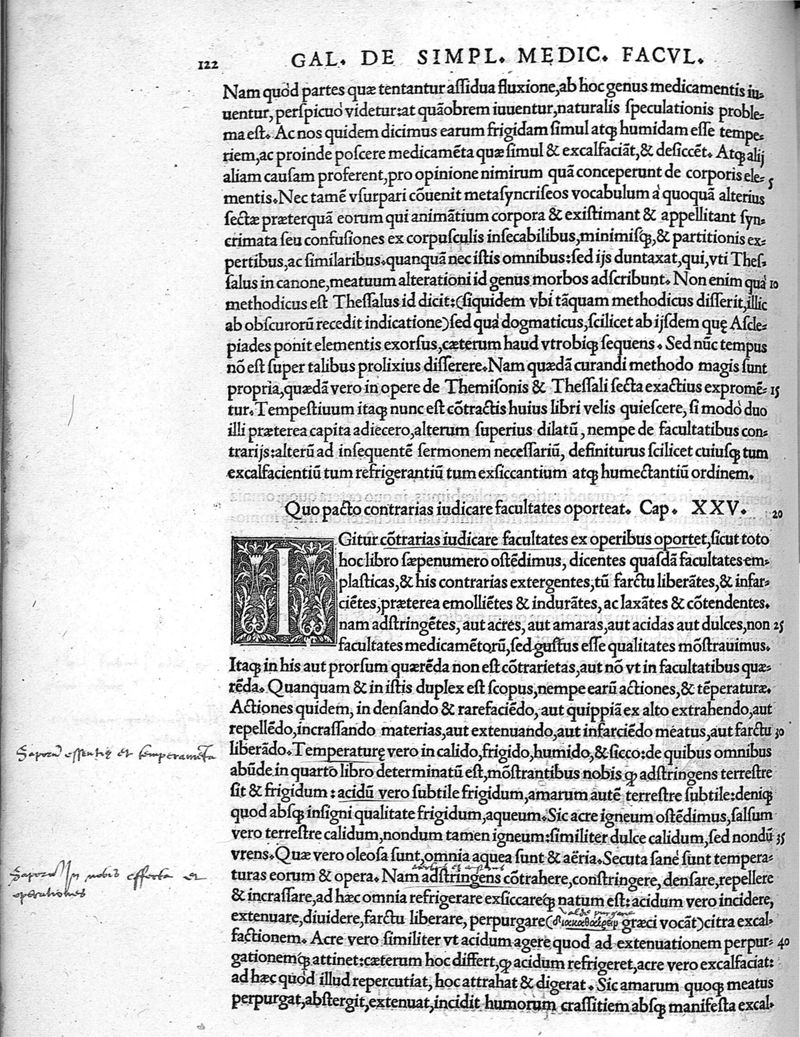 122 GAL. DE SIMPL. MEDIC. FACVL.
Nam quòd partes quæ tentantur aſſidua fluxione,ab hoc genus medicamentis iu-
uentur, perſpicuò videtur:at quāobrem iuuentur,naturalis ſpeculationis proble-
ma eſt. Ac nos quidem dicimus earum frigidam ſimul atq; humidam eſſe tempe-
riem,ac proinde poſcere medicamēta quæ ſimul & excalfaciāt,& deſiccēt. Atq; alij
aliam cauſam proferent,pro opinione nimirum quā conceperunt de corporis ele- 5
mentis. Nec tamē vſurpari cōuenit metaſyncriſeos vocabulum à quoquā alterius
ſectæ præterquā eorum qui animātium corpora & exiſtimant & appellitant ſyn-
crimata ſeu confuſiones ex corpuſculis inſecabilibus,minimiſq;,& partitionis ex-
pertibus,ac ſimilaribus.quanquā nec iſtis omnibus:ſed ijs duntaxat,qui,vti Theſ-
ſalus in canone,meatuum alterationi id genus morbos adſcribunt. Non enim quà 10
methodicus eſt Theſſalus id dicit:(ſiquidem vbi tāquam methodicus diſſerit,illic
ab obſcurorū recedit indicatione)ſed quà dogmaticus,ſcilicet ab ijſdem quę Aſcle-
piades ponit elementis exorſus,cæterum haud vtrobiq; ſequens. Sed nūc tempus
nō eſt ſuper talibus prolixius diſſerere. Nam quædā curandi methodo magis ſunt
propria,quædā vero in opere de Themiſonis & Theſſali ſecta exactius expromē- 15
tur. Tempeſtiuum itaq; nunc eſt cōtractis huius libri velis quieſcere, ſi modò duo
illi præterea capita adiecero,alterum ſuperius dilatū, nempe de facultatibus con-
trarijs:alterū ad inſequentē ſermonem neceſſariū, definiturus ſcilicet cuiuſq; tum
excalfacientiū tum refrigerantiū tum exſiccantium atq; humectantiū ordinem.
Quo pacto contrarias iudicare facultates oporteat. Cap. XXV. 20
IGitur cōtrarias iudicare facultates ex operibus oportet,ſicut toto
hoc libro ſæpenumero oſtēdimus, dicentes quaſdā facultates em-
plaſticas,& his contrarias extergentes,tū farctu liberātes,& infar-
ciētes,præterea emolliētes & indurātes, ac laxātes & cōtendentes.
nam adſtringētes, aut acres, aut amaras, aut acidas aut dulces,non 25
facultates medicamētorū,ſed guſtus eſſe qualitates mōſtrauimus.
Itaq; in his aut prorſum quærēda non eſt cōtrarietas,aut nō vt in facultatibus quæ-
rēda. Quanquam & in iſtis duplex eſt ſcopus,nempe earū actiones,& tēperaturæ.
Actiones quidem, in denſando & rarefaciēdo, aut quippiā ex alto extrahendo,aut
repellēdo,incraſſando materias,aut extenuando,aut infarciēdo meatus,aut farctu 30
liberādo. Temperaturę vero in calido,frigido,humido,& ſicco:de quibus omnibus
abūde in quarto libro determinatū eſt,mōſtrantibus nobis ꝙ adſtringens terreſtre
ſit & frigidum : acidū vero ſubtile frigidum,amarum autē terreſtre ſubtile:deniq;
quod abſq; inſigni qualitate frigidum,aqueum. Sic acre igneum oſtēdimus,ſalſum
vero terreſtre calidum,nondum tamen igneum:ſimiliter dulce calidum,ſed nondū 35
vrens. Quæ vero oleoſa ſunt,omnia aquea ſunt & aëria. Secuta ſanè ſunt tempera-
turas eorum & opera. Nam adſtringens cōtrahere,conſtringere, denſare,repellere
& incraſſare,ad hæc omnia refrigerare exſiccareq; natum eſt: acidum vero incidere,
extenuare,diuidere,farctu liberare, perpurgare(διακαθαίρειν græci vocāt)citra excal-
factionem. Acre vero ſimiliter vt acidum agere quod ad extenuationem perpur- 40
gationemq; attinet:cæterum hoc differt,ꝙ acidum refrigeret,acre vero excalfaciat:
ad hæc quòd illud repercutiat, hoc attrahat & digerat. Sic amarum quoq; meatus
perpurgat,abſtergit,extenuat,incidit humorum craſſitiem abſq; manifeſta excal-
Saporū essentię et temperamēta
Saporū in nobis effecta et
operationes